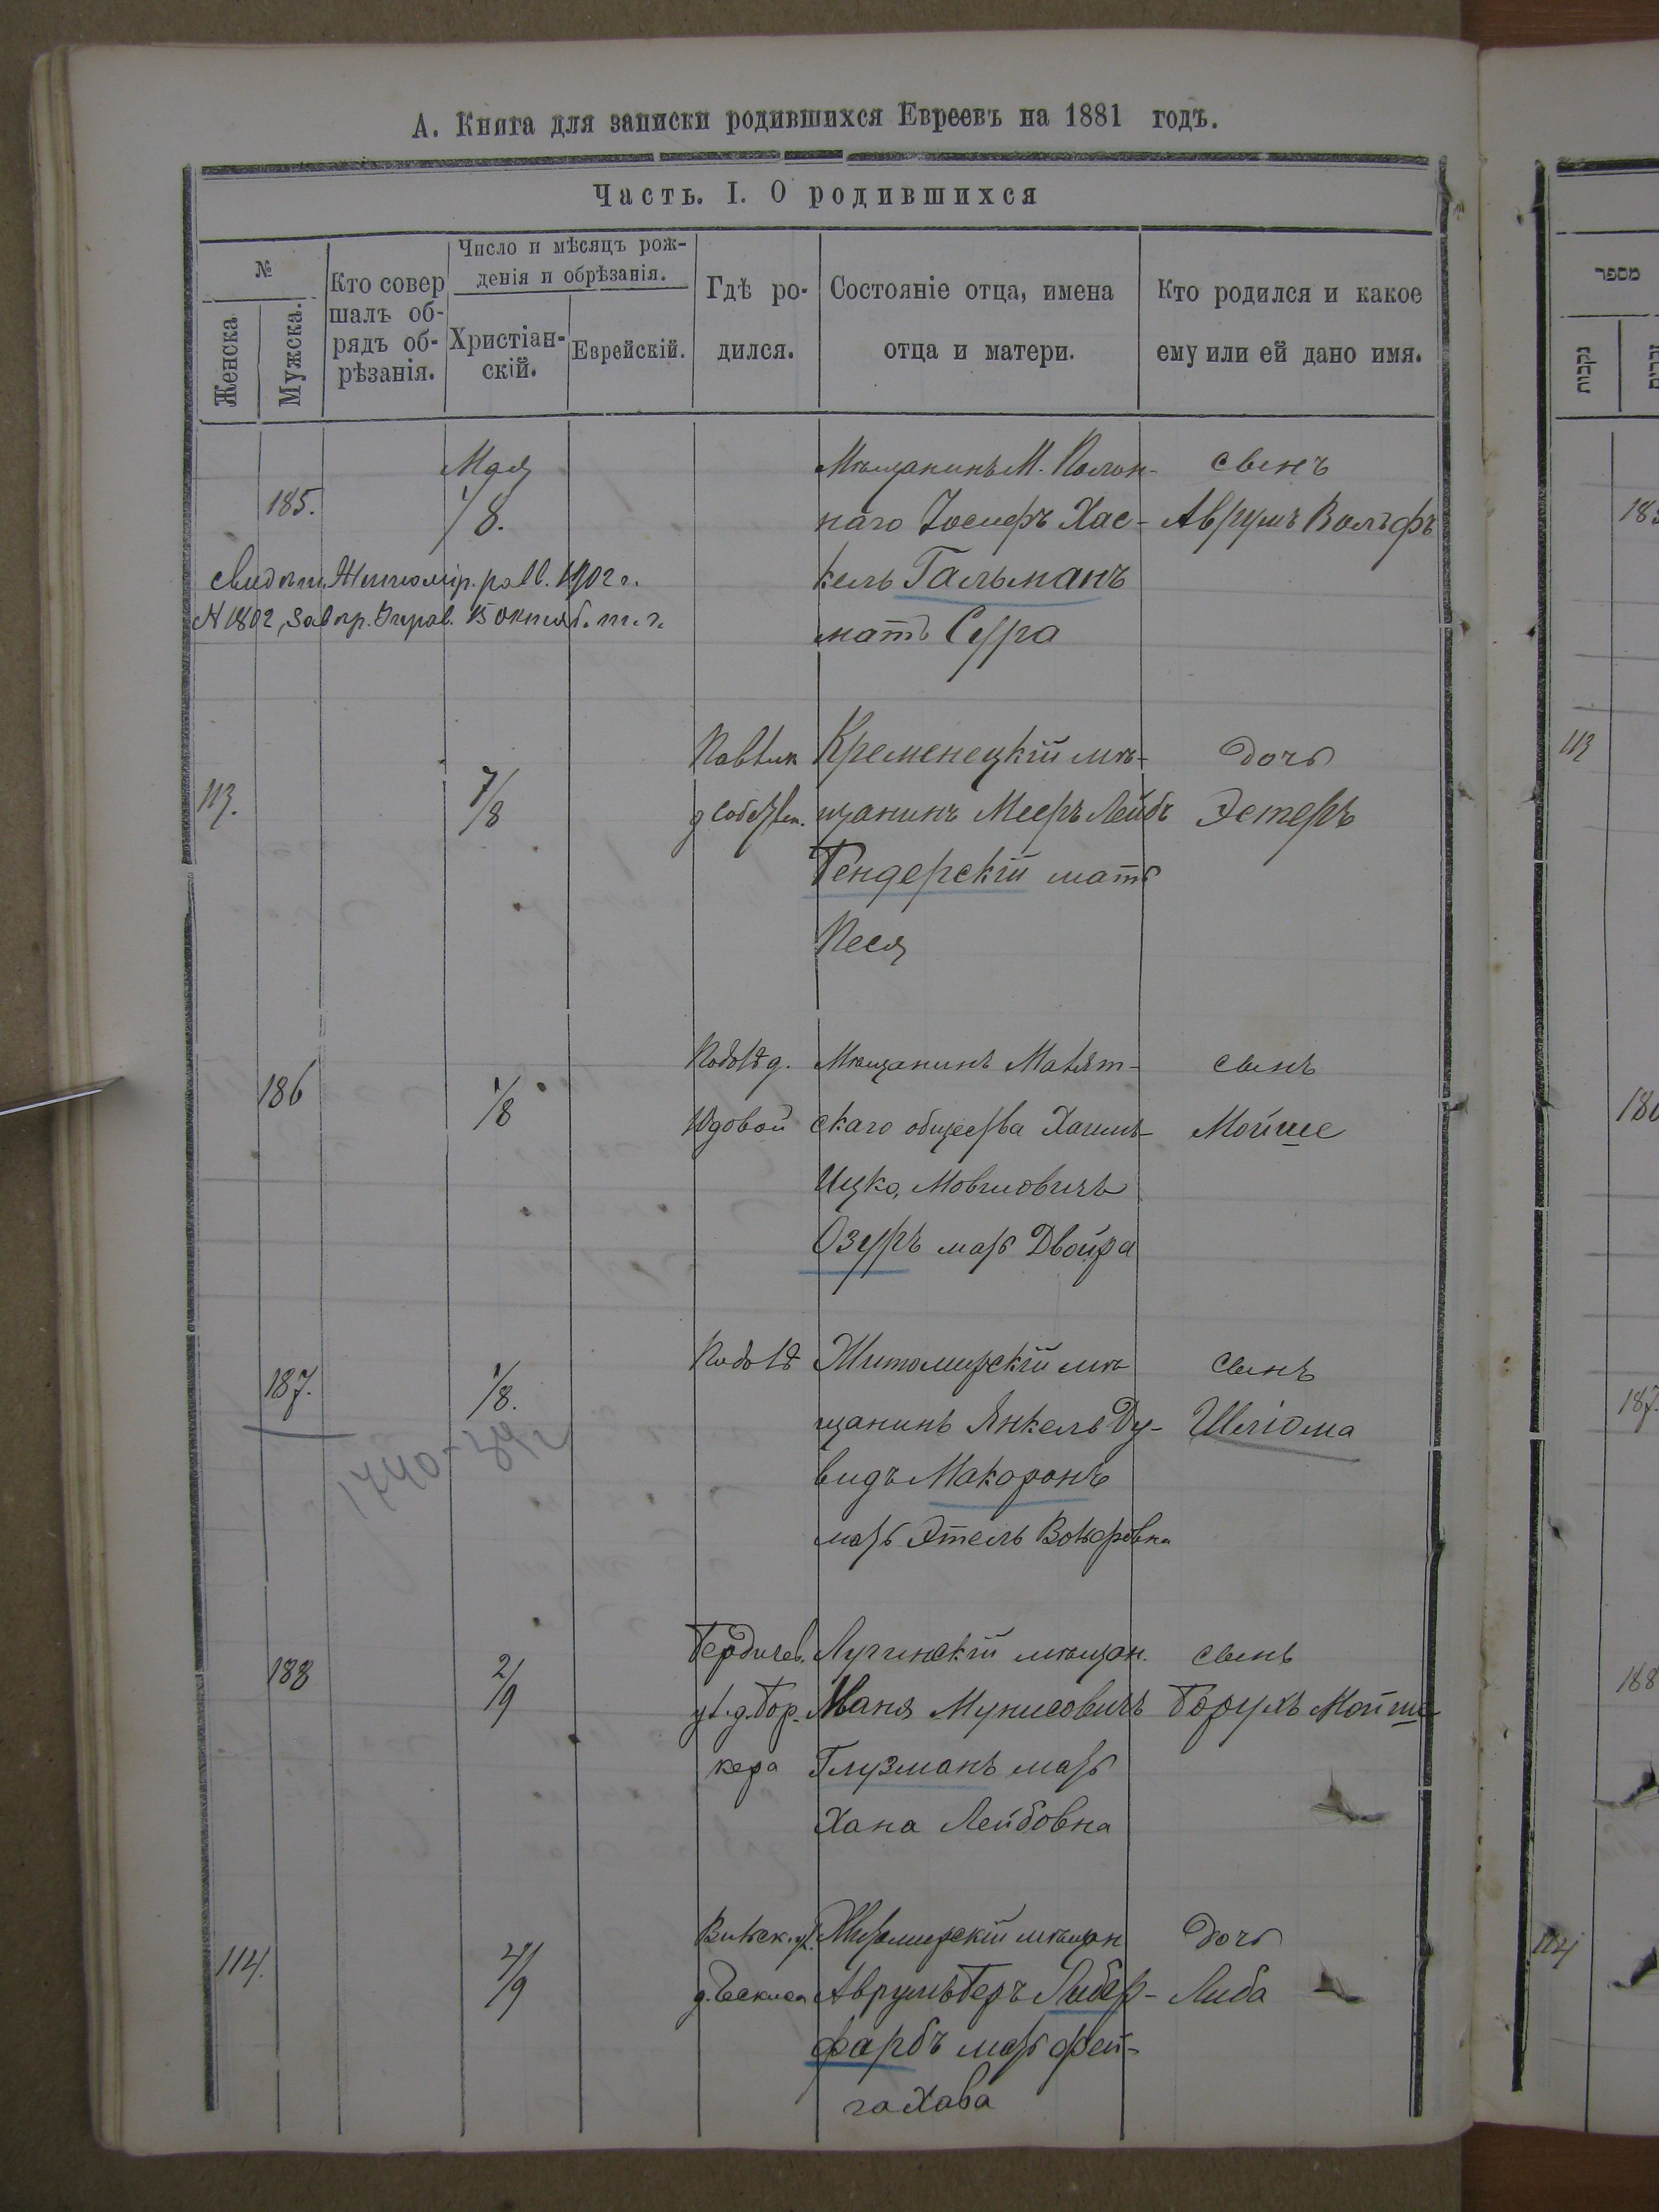 А. Книга для записки родившихся Евреевъ на 1881 годъ.
Часть. I. О родившихся
№
Женска
Мужска.
Кто совер
шалъ об-
рядъ об-
рѣзанія.
Число и мѣсяцъ рож-
денія и обрѣзанія.
Христіан-
скій.
Еврейскій.
Гдѣ ро-
дился.
Состояніе отца, имена
отца и матери.
Кто родился и какое
ему или ей дано имя.
מספר
נקבות
185.
Мая
1/8.
Мѣщанинъ М. Полон-
наго Іосифъ Хас-
кель Гальманъ
мать Сура
сынъ
Аврумъ Вольфъ
Житомір. равв. 1902 г.
N 1802, 15 октяб. т. г.
113.
7/8
Кременецкій мѣ-
щанинъ Мееръ Лейбъ
Бендерскій мать
Песя
дочь
Эстеръ
113
186
1/8
Вдовой
Мѣщанинъ
скаго общества Хаимъ-
Ицко Мовшовичъ
Озуръ мать Двойра
сынъ
Мойше
187.
1/8.
1740-39г
Житомирскій мѣ
щанинъ Янкель Ду-
видъ Макаронъ
мать Этель
сынъ
Шліома
187.
188
2/9
Бердичев.
д. Бор-
кера
Лугинскій мѣщан.
Маня Мунисовичъ
Глузманъ мать
Хана Лейбовна
сынъ
Борухъ Мойше
188
114.
2/9
Житомирскій мѣщан
Аврумъ Беръ Либер-
фарбъ мать Фей-
га Хава
дочь
Либа
114